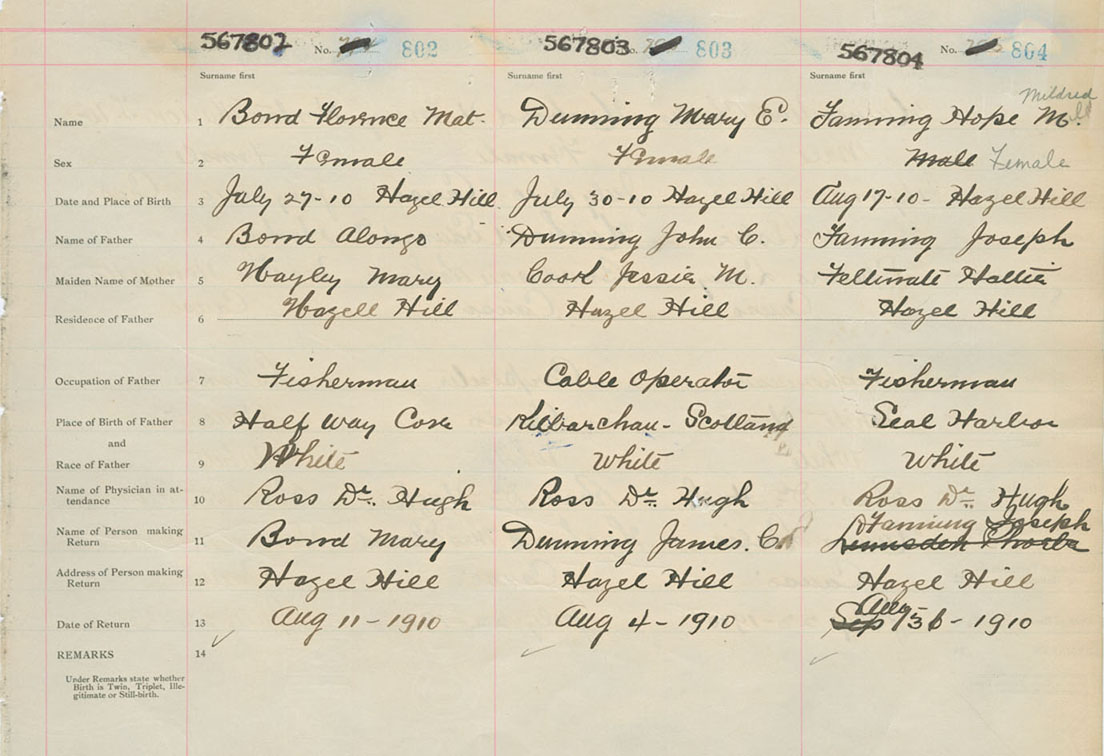 567802 No. 802 567803 No. 803 567804 No. 804
Surname first Surname first Surname first
Mildred
Name 1 Bond Florence Mat. Dunning Mary E. Fanning Hope M.
Sex 2 Female Female Male Female
Date and Place of Birth 3 July 27-10 Hazel Hill July 30-10 Hazel Hill Aug 17-10- Hazel Hill
Name of Father 4 Bond Alongo Dunning John C. Fanning Joseph
Maiden Name of Mother 5 Hayley Mary Cook Jessie M. Feltmate Hattie
Residence of Father 6 Hazell Hill Hazel Hill Hazel Hill
Occupation of Father 7 Fisherman Cable Operator Fisherman
Place of Birth of Father 8 Half Way Cove Kilbarchan - Scotland Seal Harbor
and
Race of Father 9 White White White
Name of Physician in at-
tendance 10 Ross Dr. Hugh Ross Dr. Hugh Ross Dr. Hugh
Fanning Joseph
Name of Person making
Return 11 Bond Mary Dunning James. C.
Address of Person making
Return 12 Hazel Hill Hazel Hill Hazel Hill
Aug
Date of Return 13 Aug 11 - 1910 Aug 4 - 1910 Sep - 1910
REMARKS 14
Under Remarks state whether
Birth is Twin, Triplet, Ille-
gitimate or Still-birth.